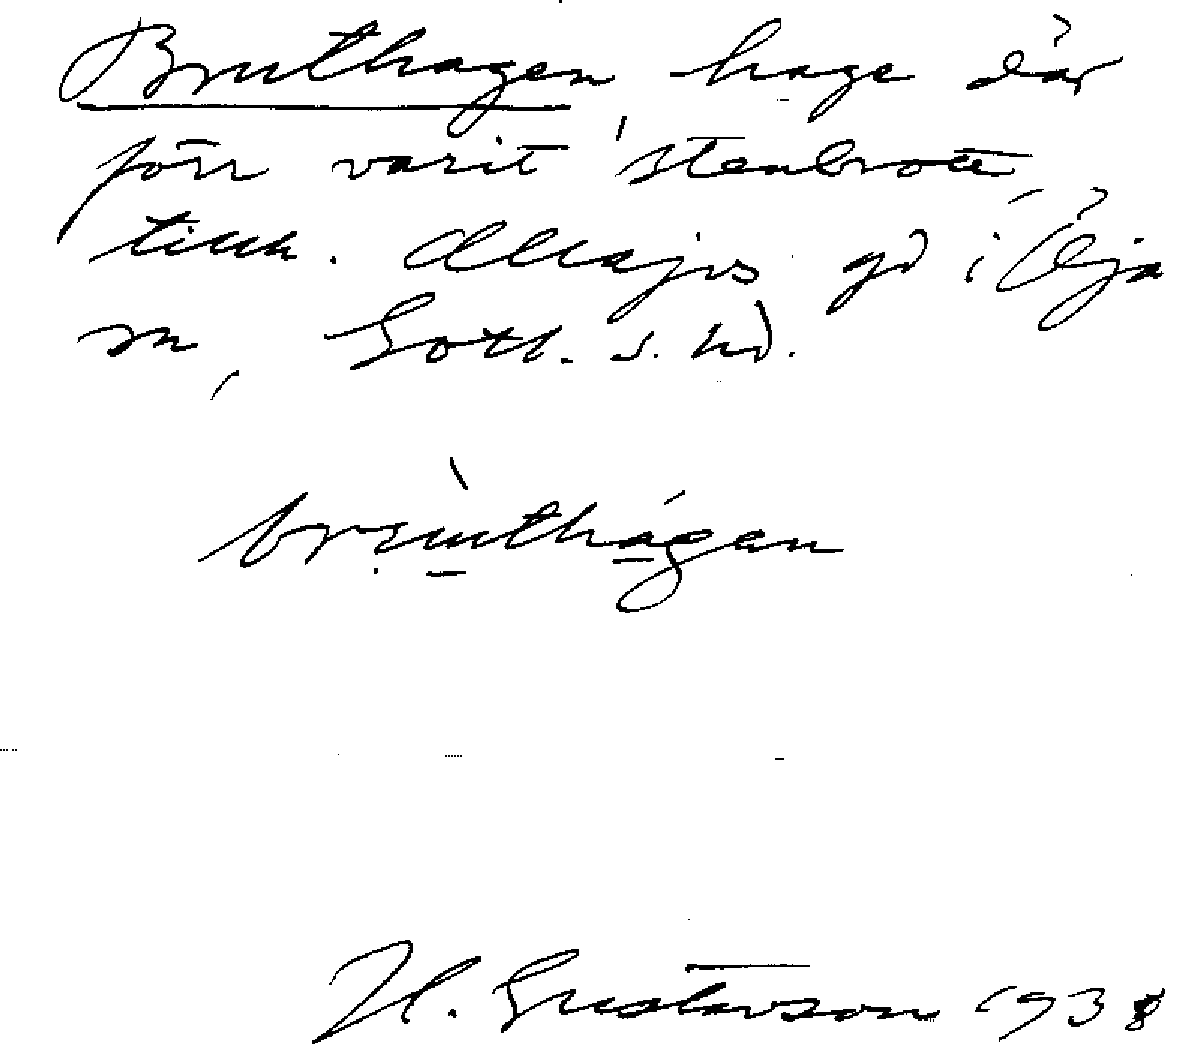 Bruthagen, hage där
förr varit stenbrott,
tillh. Allajvs gd i Öja
sn, Gotl. s. hd.
brùthágen
H. Gustavson 1938